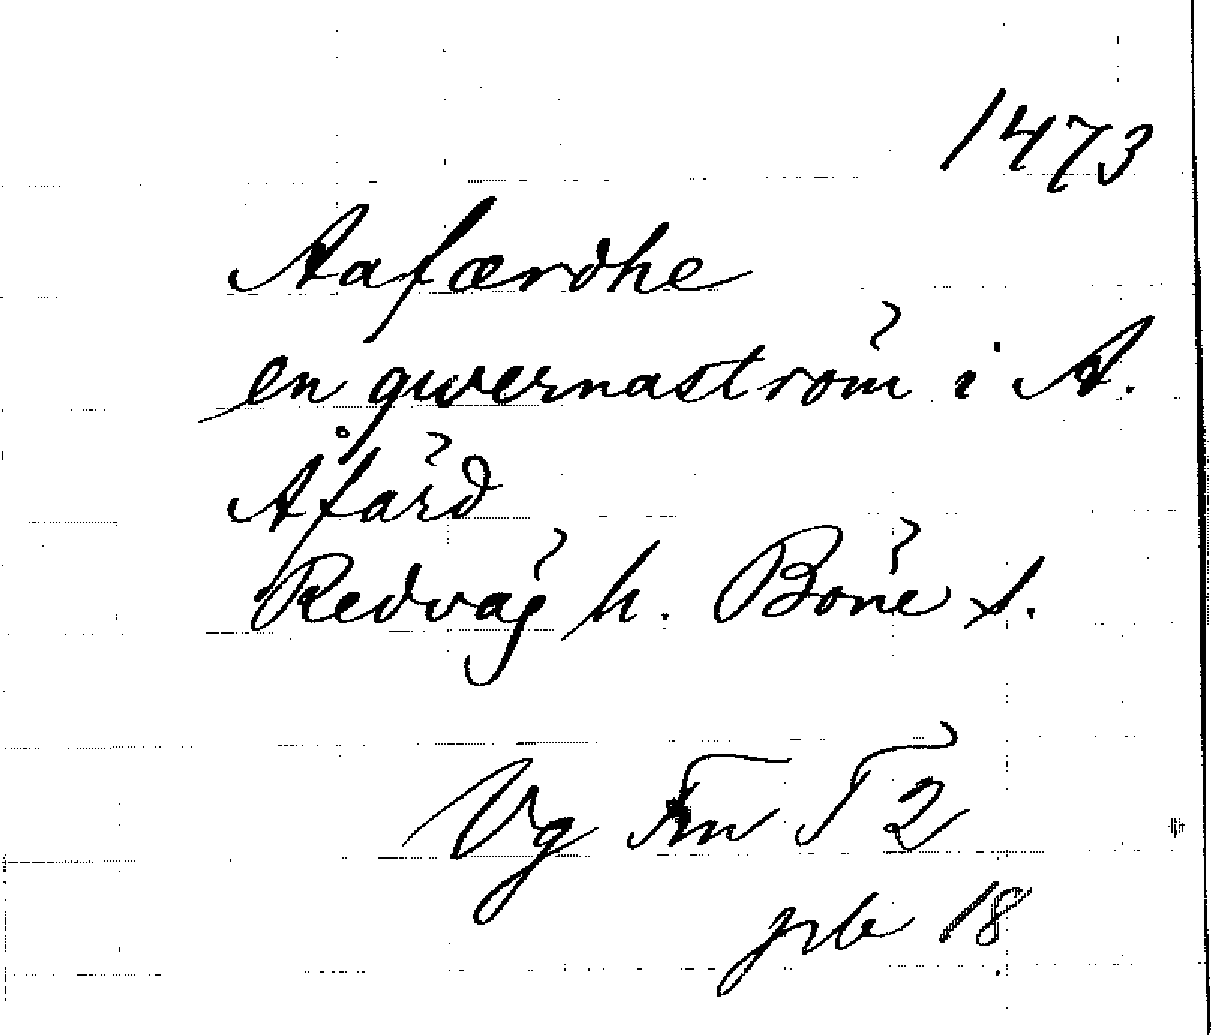 1473
Aafærdhe
en qwernaström i A.
Åfärd
Redväg h. Böne s.
Vg Fm T 2
prb 18